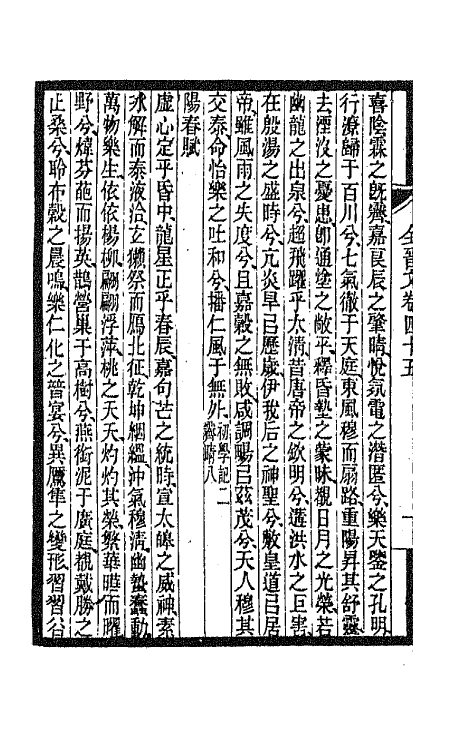 喜陰霖之旣霽嘉良辰之肇晴悅氛電之潛匿兮樂天鑒之孔明
行潦歸于百川兮七氣徹于天庭東風穆而扇路重陽昇其舒靈
去湮沒之憂患卽通塗之敞平釋昏墊之蒙昧覩日月之光榮若
幽龍之出泉兮超飛躍乎太清昔唐帝之欽明兮遘洪水之巨害
在殷湯之盛時兮亢炎旱㠯歷歲伊我后之神聖兮敷皇道㠯居
帝雖風雨之失度兮且嘉穀之無敗咸調暢㠯茲茂兮天人穆其
交泰命怡樂之吐和兮播仁風于無外初學記二
陽春賦
虛心定乎昏中龍星正乎春辰嘉句芒之統時宣太皞之威神素
冰解而泰液洽玄獺祭而鴈北征乾坤絪縕沖氣穆清幽蟄蠢動
萬物樂生依依楊柳翩翩浮萍桃之夭夭灼灼其榮繁華曄而曜
野兮煒芬葩而揚英鵲營巢于高樹兮燕銜泥于廣庭覩戴勝之
止桑兮聆布穀之晨鳴樂仁化之普宴兮異鷹隼之變形習習谷
全晉文卷四十五